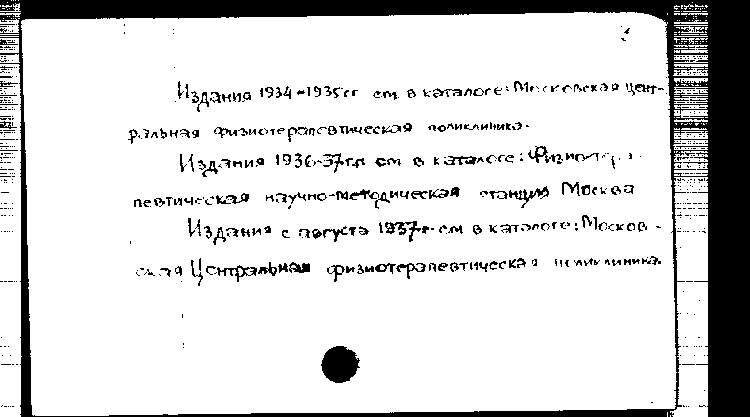 Издания 1934-1935 гг см. в каталоге: Московская цент-
ральная физиотерапевтическая поликлиника.
Издания 1936-37 гг. см в каталоге: Физиотера-
певтическая научно-методическая станция Москва
Издания с августа 1937 г. см в каталоге: Москов-
ская Центральная физиотерапевтическая поликлиника.